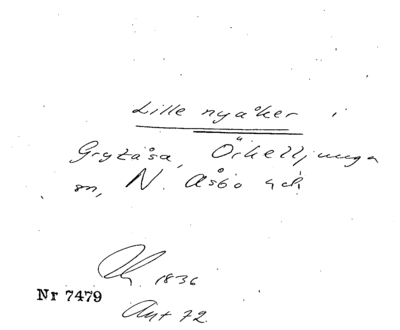 Lille nyåker i
Grytåsa, Örkelljunga
sn, N. Åsbo hd.
1836
Nr 7479
Avt 72.